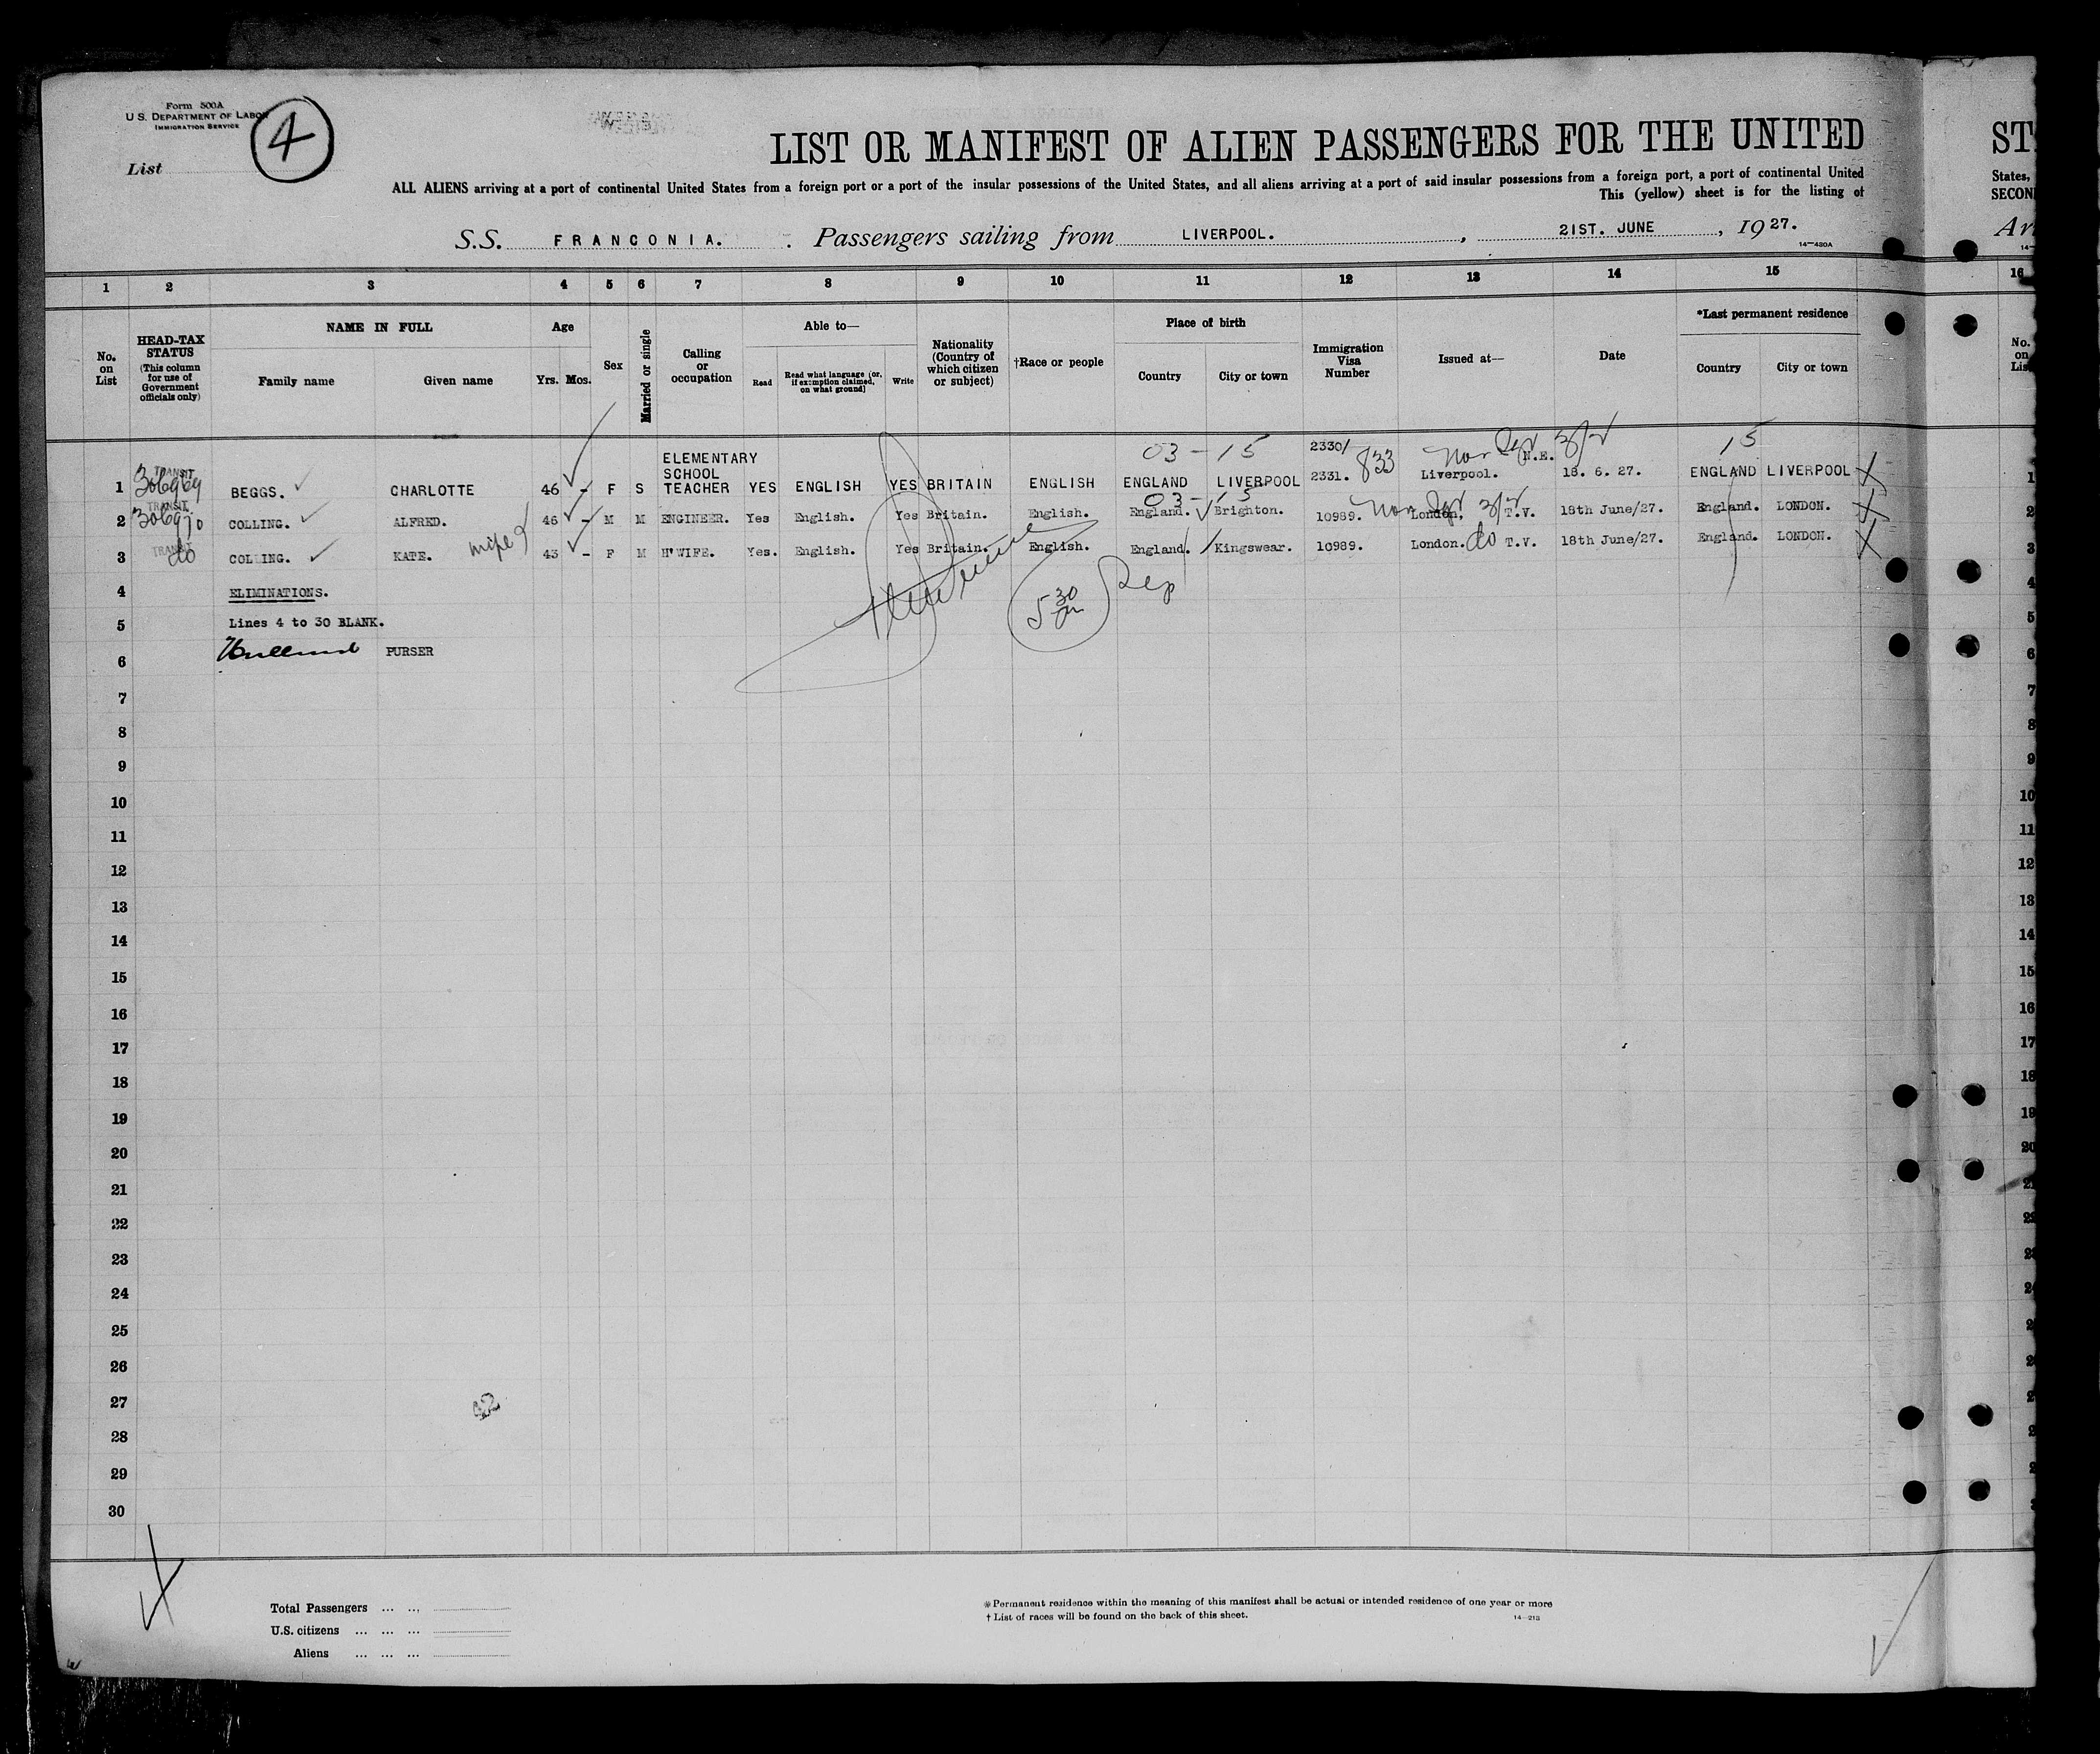 Form 500A
U.S. DEPARTMENT OF LABOR
IMMIGRATION SERVICE
4
List
LIST OR MANIFEST OF ALIEN PASSENGERS FOR THE UNITED
ALL ALIENS arriving at a port of continental United States from a foreign port or a port of the insular possessions of the United States, and all aliens arriving at a port of said insular possessions from a foreign port, a port of continental United
This (yellow) sheet is for the listing of
S.S. FRANCONIA. Passengers sailing from LIVERPOOL., 21ST. JUNE, 1927.
14—430A
1 2 3 4 5 6 7 8 9 10 11 12 13 14 15
No. on List
HEAD-TAX STATUS (This column for use of Government officials only)
NAME IN FULL
Family name Given name
Age
Yrs. Mos.
Sex
Married or single
Calling or occupation
Able to—
Read
Read what language (or, if exemption claimed, on what ground)
Write
Nationality (Country of which citizen or subject)
†Race or people
Place of birth
Country City or town
Immigration Visa Number
Issued at—
Date
*Last permanent residence
Country City or town
03-15 15
1 TRANSIT 306969 BEGGS. CHARLOTTE 46 - F S ELEMENTARY SCHOOL TEACHER YES ENGLISH YES BRITAIN ENGLISH ENGLAND LIVERPOOL 2330/ 2331. 833 Liverpool. N.E. 18. 6. 27. ENGLAND LIVERPOOL
03-15
2 TRANSIT 306970 COLLING. ALFRED. 46 - M M ENGINEER. Yes English. Yes Britain. English. England. Brighton. 10989. London, T.V. 18th June/27. England. LONDON.
3 TRANSIT do COLLING. KATE. wife 43 - F M H'WIFE. Yes. English. Yes Britain. English. England. Kingswear. 10989. London. do T.V. 18th June/27. England. LONDON.
4 ELIMINATIONS.
5 Lines 4 to 30 BLANK.
6 PURSER
7
8
9
10
11
12
13
14
15
16
17
18
19
20
21
22
23
24
25
26
27
28
29
30
Total Passengers
U.S. citizens
Aliens
* Permanent residence within the meaning of this manifest shall be actual or intended residence of one year or more
† List of races will be found on the back of this sheet.
14—213
ST
States,
SECON
Ar
16
No. on Lis
1
2
3
4
5
6
7
8
9
10
11
12
13
14
15
16
17
18
19
20